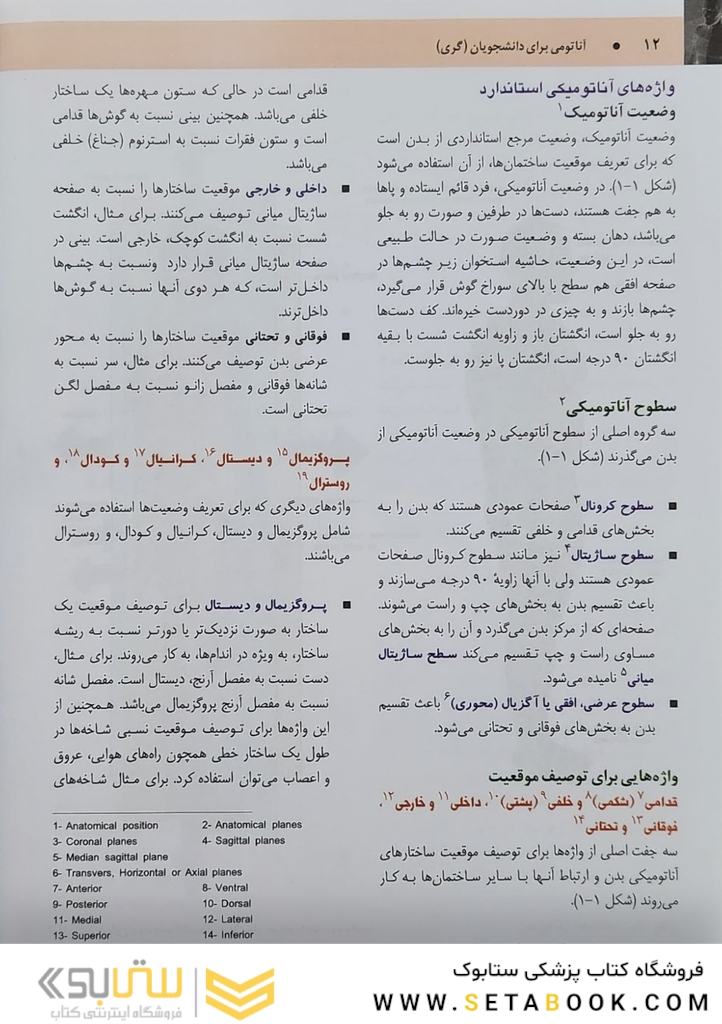 ۱۲ ● آناتومی برای دانشجویان (گری)
واژه‌های آناتومیکی استاندارد
وضعیت آناتومیک۱
وضعیت آناتومیک، وضعیت مرجع استانداردی از بدن است
که برای تعریف موقعیت ساختمان‌ها، از آن استفاده می‌شود
(شکل ۱-۱). در وضعیت آناتومیکی، فرد قائم ایستاده و پاها
به هم جفت هستند، دست‌ها در طرفین و صورت رو به جلو
می‌باشد، دهان بسته و وضعیت صورت در حالت طبیعی
است، در این وضعیت، حاشیه استخوان زیر چشم‌ها در
صفحه افقی هم سطح با بالای سوراخ گوش قرار می‌گیرد،
چشم‌ها بازند و به چیزی در دوردست خیره‌اند. کف دست‌ها
رو به جلو است، انگشتان باز و زاویه انگشت شست با بقیه
انگشتان ۹۰ درجه است، انگشتان پا نیز رو به جلوست.
سطوح آناتومیکی۲
سه گروه اصلی از سطوح آناتومیکی در وضعیت آناتومیکی از
بدن می‌گذرند (شکل ۱-۱).
■ سطوح کرونال۳ صفحات عمودی هستند که بدن را به
بخش‌های قدامی و خلفی تقسیم می‌کنند.
■ سطوح ساژیتال۴ نیز مانند سطوح کرونال صفحات
عمودی هستند ولی با آنها زاویهٔ ۹۰ درجه می‌سازند و
باعث تقسیم بدن به بخش‌های چپ و راست می‌شوند.
صفحه‌ای که از مرکز بدن می‌گذرد و آن را به بخش‌های
مساوی راست و چپ تقسیم می‌کند سطح ساژیتال
میانی۵ نامیده می‌شود.
■ سطوح عرضی، افقی یا آگزیال (محوری)۶ باعث تقسیم
بدن به بخش‌های فوقانی و تحتانی می‌شود.
واژه‌هایی برای توصیف موقعیت
قدامی۷ (شکمی)۸ و خلفی۹ (پشتی)۱۰، داخلی۱۱ و خارجی۱۲،
فوقانی۱۳ و تحتانی۱۴
سه جفت اصلی از واژه‌ها برای توصیف موقعیت ساختارهای
آناتومیکی بدن و ارتباط آنها با سایر ساختمان‌ها به کار
می‌روند (شکل ۱-۱).
قدامی است در حالی که ستون مهره‌ها یک ساختار
خلفی می‌باشد. همچنین بینی نسبت به گوش‌ها قدامی
است و ستون فقرات نسبت به استرنوم (جناغ) خلفی
می‌باشد.
■ داخلی و خارجی موقعیت ساختارها را نسبت به صفحه
ساژیتال میانی توصیف می‌کنند. برای مثال، انگشت
شست نسبت به انگشت کوچک، خارجی است. بینی در
صفحه ساژیتال میانی قرار دارد ونسبت به چشم‌ها
داخل‌تر است، که هر دوی آنها نسبت به گوش‌ها
داخل‌ترند.
■ فوقانی و تحتانی موقعیت ساختارها را نسبت به محور
عرضی بدن توصیف می‌کنند. برای مثال، سر نسبت به
شانه‌ها فوقانی و مفصل زانو نسبت به مفصل لگن
تحتانی است.
پروگزیمال۱۵ و دیستال۱۶، کرانیال۱۷ و کودال۱۸، و
روسترال۱۹
واژه‌های دیگری که برای تعریف وضعیت‌ها استفاده می‌شوند
شامل پروگزیمال و دیستال، کرانیال و کودال، و روسترال
می‌باشند.
■ پروگزیمال و دیستال برای توصیف موقعیت یک
ساختار به صورت نزدیک‌تر یا دورتر نسبت به ریشه
ساختار، به ویژه در اندام‌ها، به کار می‌روند. برای مثال،
دست نسبت به مفصل آرنج، دیستال است. مفصل شانه
نسبت به مفصل آرنج پروگزیمال می‌باشد. همچنین از
این واژه‌ها برای توصیف موقعیت نسبی شاخه‌ها در
طول یک ساختار خطی همچون راه‌های هوایی، عروق
و اعصاب می‌توان استفاده کرد. برای مثال شاخه‌های
1- Anatomical position 2- Anatomical planes
3- Coronal planes 4- Sagittal planes
5- Median sagittal plane
6- Transvers, Horizontal or Axial planes
7- Anterior 8- Ventral
9- Posterior 10- Dorsal
11- Medial 12- Lateral
13- Superior 14- Inferior
فروشگاه کتاب پزشکی ستابوک
WWW.SETABOOK.COM
ستابوک
فروشگاه اینترنتی کتاب